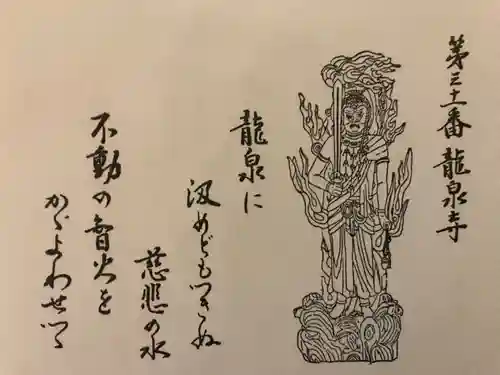 第三十一番 龍泉寺
龍泉に
汲めどもつきぬ
慈悲の水
不動の智火を
かゞよわせつゝ